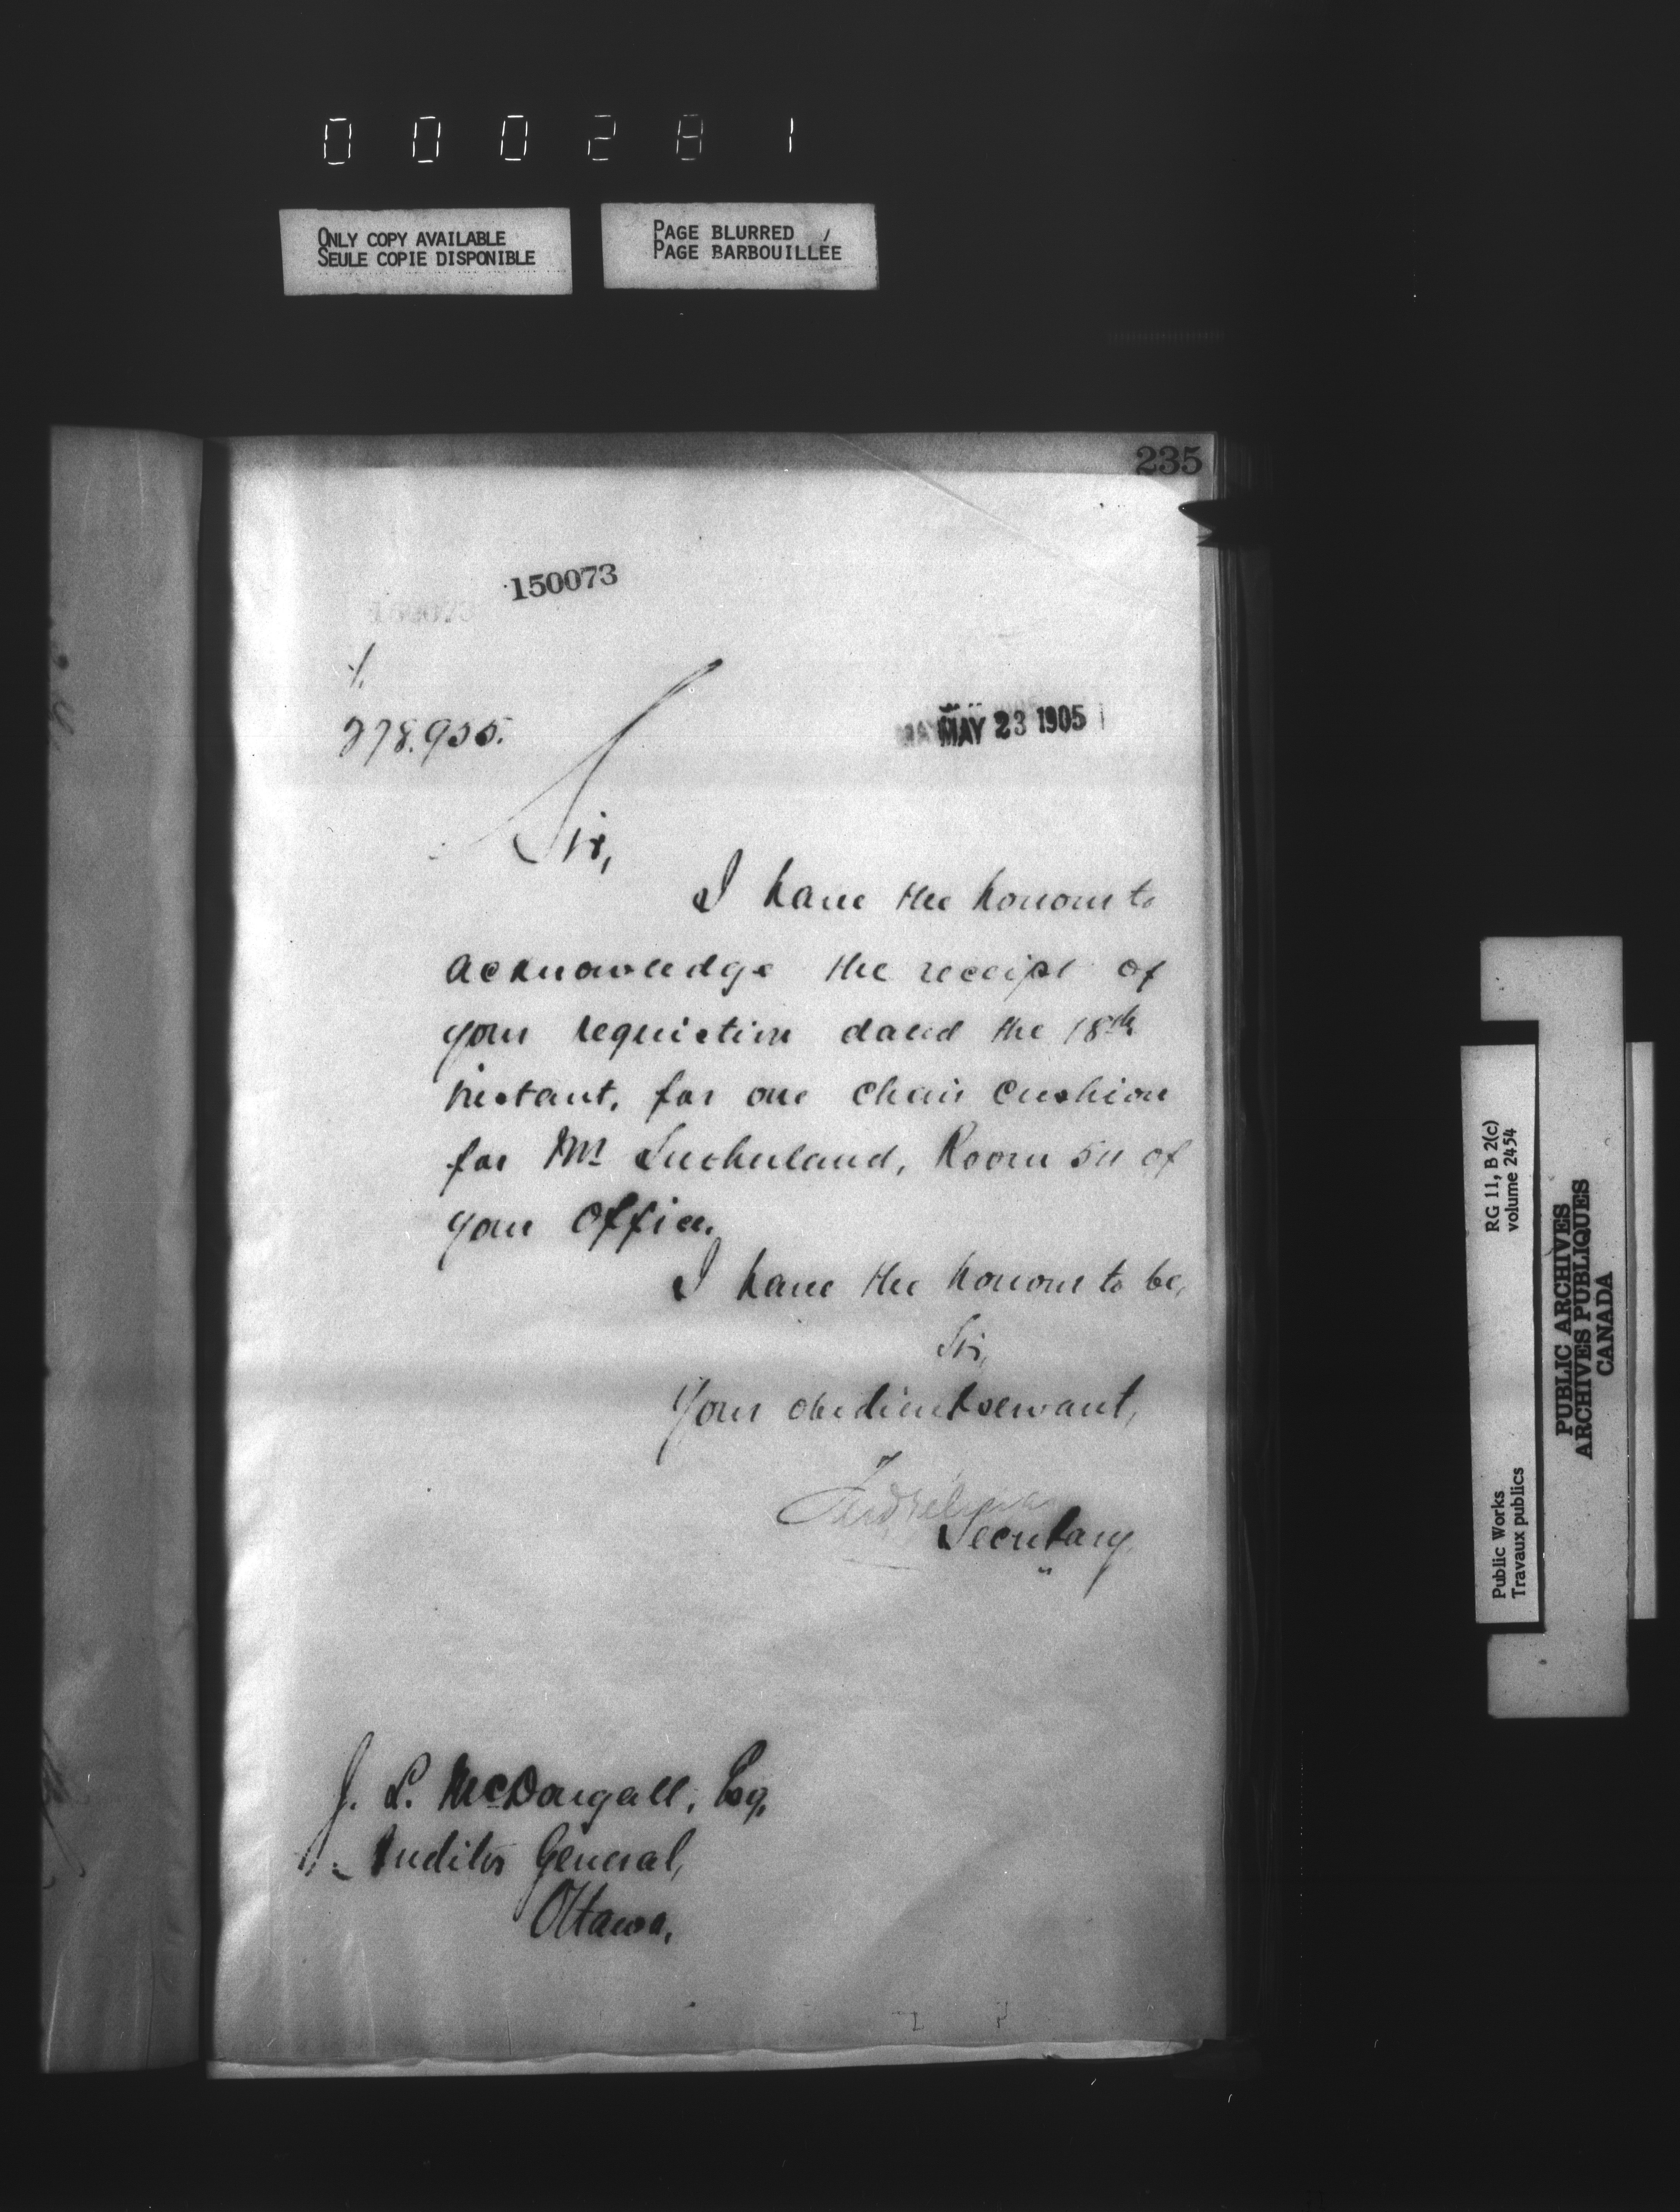 000281
ONLY COPY AVAILABLE
SEULE COPIE DISPONIBLE
PAGE BLURRED
PAGE BARBOUILLÉE
235
150073
MAY 23 1905
278.955.
Sir,
I have the honour to
acknowledge the receipt of
your requisition dated the 18th
instant, for one chair cushion
for Mr Sutherland, Room 511 of
your Office.
I have the honour to be,
Sir,
Your obedient servant,
Secretary
J. L. McDougall, Esq,
Auditor General,
Ottawa,
RG 11, B 2(c)
volume 2454
Public Works
Travaux publics
PUBLIC ARCHIVES
ARCHIVES PUBLIQUES
CANADA